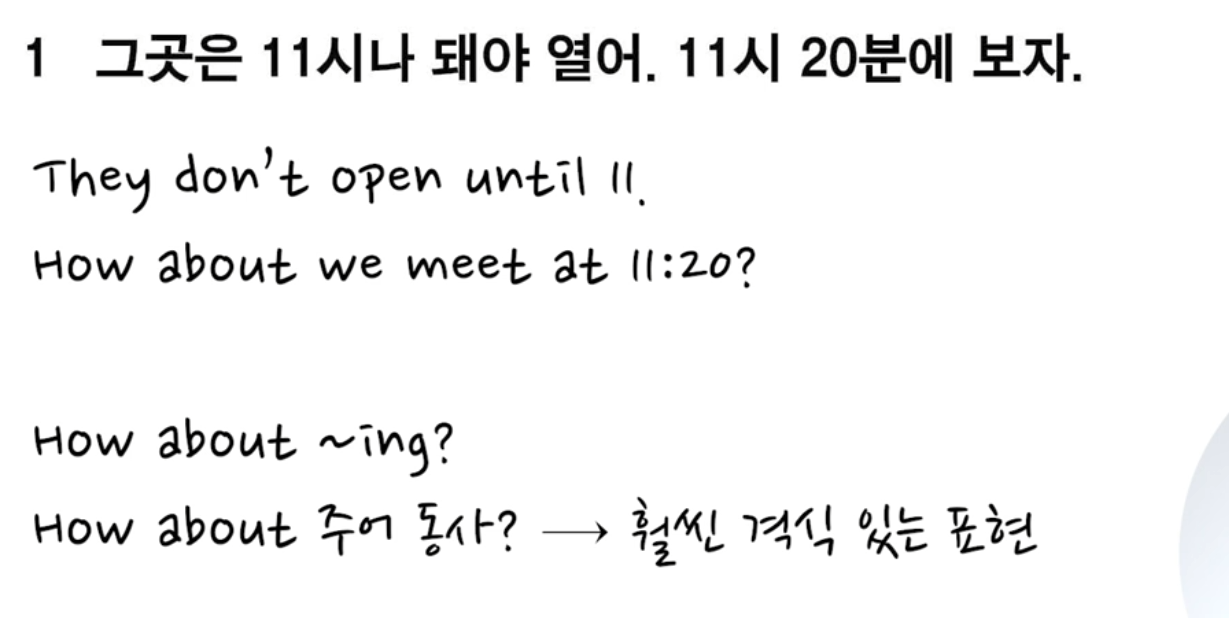 1 그곳은 11시나 돼야 열어. 11시 20분에 보자.
They don't open until 11.
How about we meet at 11:20?
How about ~ing?
How about 주어 동사? → 훨씬 격식 있는 표현